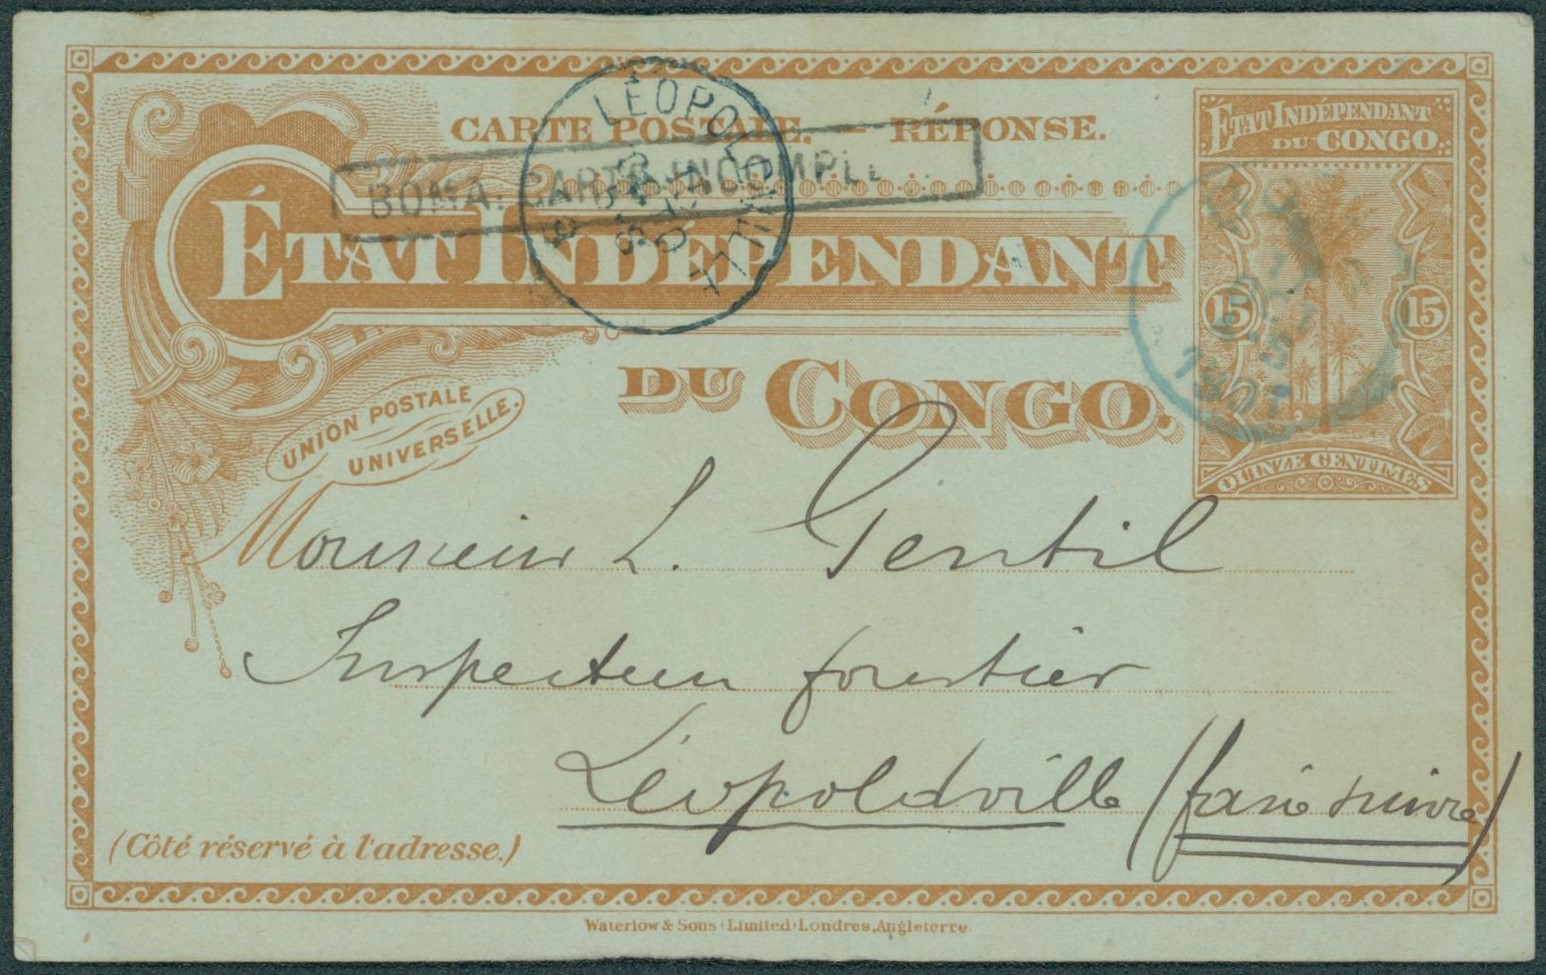 CARTE POSTALE. — RÉPONSE.
BOMA. CARTE INCOMPLE
LÉOPOLDVILLE
ÉTAT INDÉPENDANT
DU CONGO.
UNION POSTALE
UNIVERSELLE.
ÉTAT INDÉPENDANT
DU CONGO.
15 15
QUINZE CENTIMES
1907
Monsieur L. Gentil
Inspecteur forestier
Léopoldville (faire suivre)
(Côté réservé à l'adresse.)
Waterlow & Sons (Limited) Londres, Angleterre.